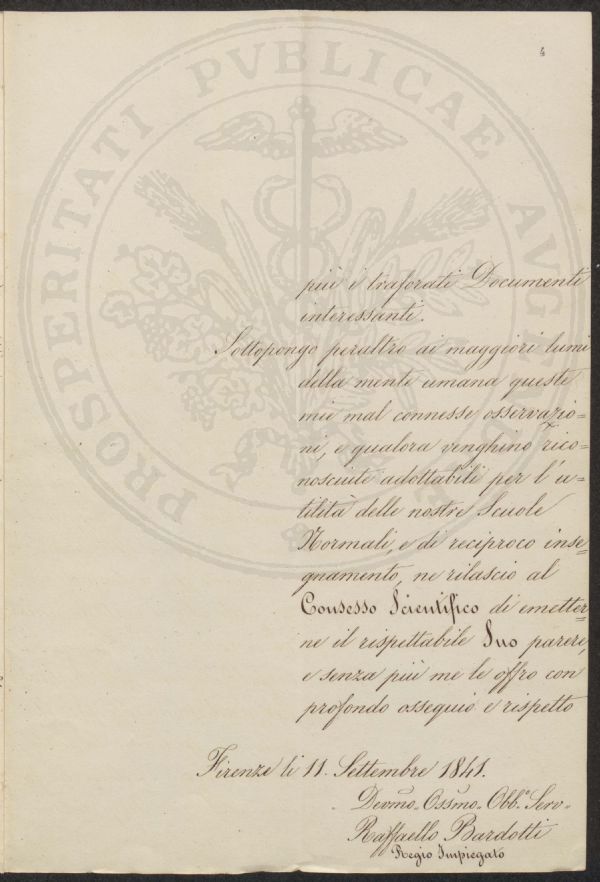 4
PROSPERITATI PVBLICAE AVG
più i traforati Documenti
interessanti.
Sottopongo peraltro ai maggiori lumi
della mente umana queste
mie mal connesse osservazio=
ni, e qualora venghino rico=
nosciute adottabili per l'u=
tilità delle nostre Scuole
Normali, e di reciproco inse=
gnamento, ne rilascio al
Consesso Scientifico di emetter=
ne il rispettabile Suo parere,
e senza più me le offro con
profondo ossequio e rispetto
Firenze li 11. Settembre 1841.
Devmo. Ossmo. Obb.o Serv.
Raffaello Bardotti
Regio Impiegato